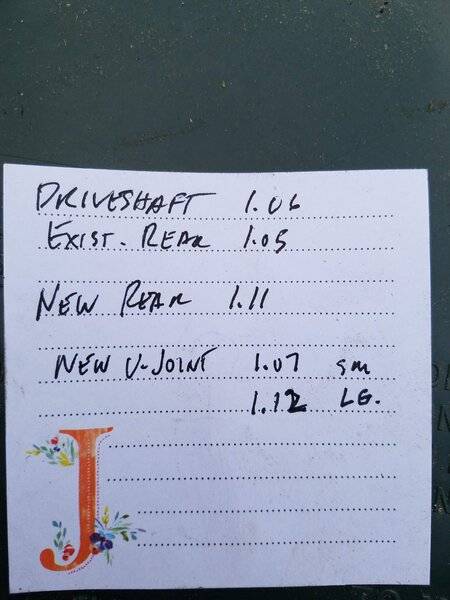 DRIVESHAFT 1.06
EXIST. REAR 1.05
NEW REAR 1.11
NEW U-JOINT 1.07 sm
1.12 LG.
J